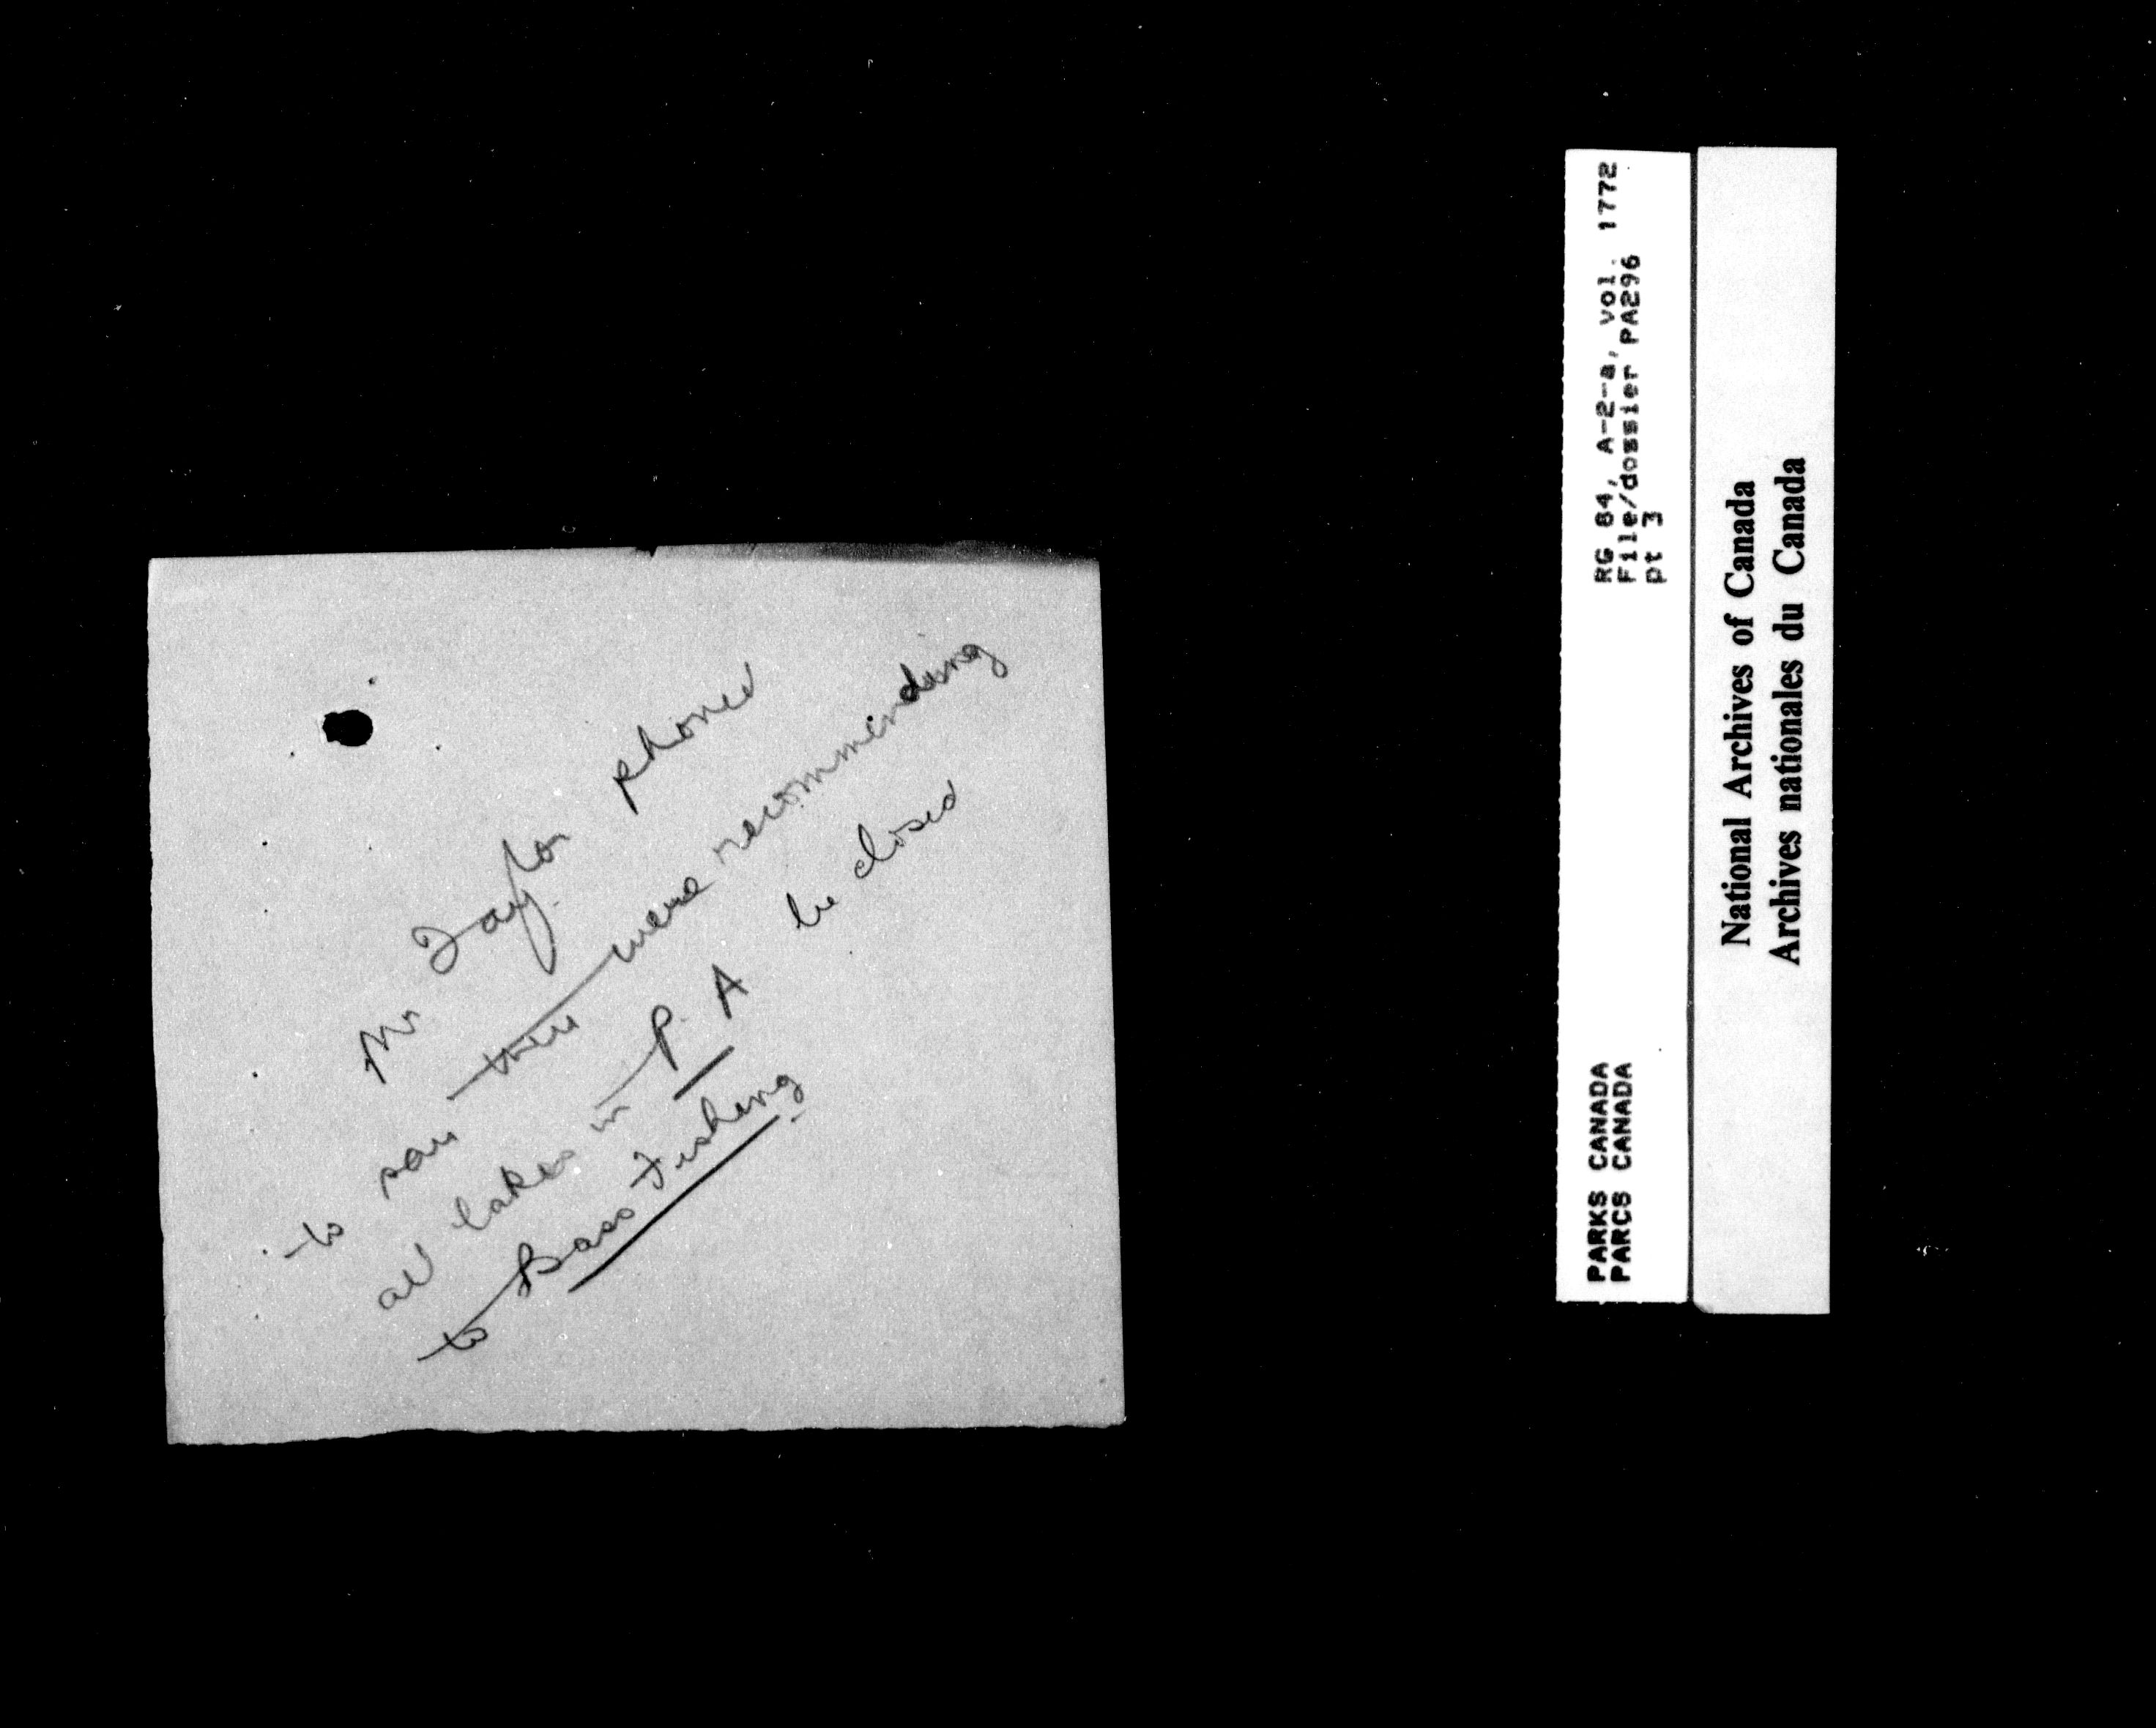 Mr Taylor phoned
to say were recommending
all lakes in P. A be closed
to Bass Fishing
RG 84, A-2-a, vol. 1772
File/dossier PA296
pt 3
PARKS CANADA
PARCS CANADA
National Archives of Canada
Archives nationales du Canada